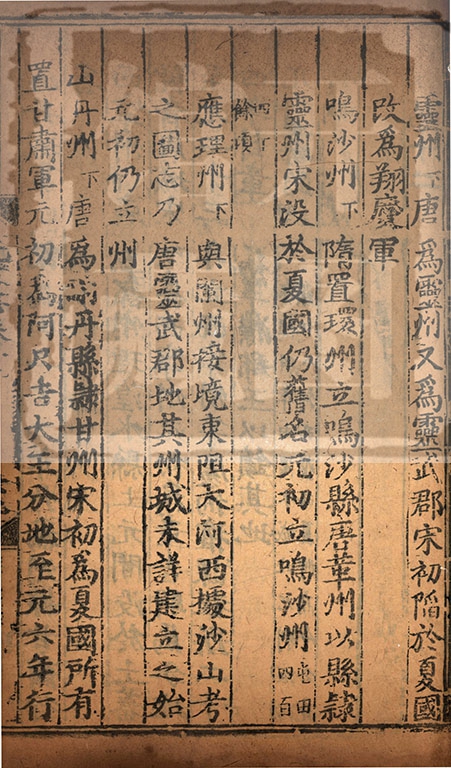 靈州下唐為靈州又為靈武郡宋初陷於夏國
改為翔慶軍
鳴沙州下隋置環州立鳴沙縣唐革州以縣隷
靈州宋没扵夏國仍舊名元初立鳴沙州屯田四百
餘頃
應理州下與蘭州接境東阻大河西據沙山考
之圖志乃唐靈武郡地其州城未詳建立之始
元初仍立州
山丹州下唐為刪丹縣隷甘州宋初為夏國所有
置甘肅軍元初為阿只吉大王分地至元六年行